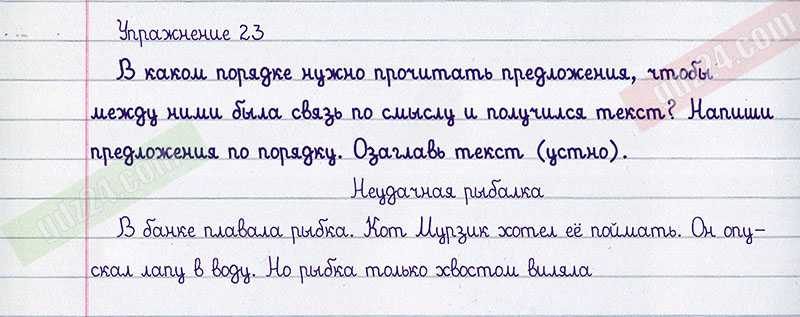 Упражнение 23
В каком порядке нужно прочитать предложения, чтобы
между ними была связь по смыслу и получился текст? Напиши
предложения по порядку. Озаглавь текст (устно).
Неудачная рыбалка
В банке плавала рыбка. Кот Мурзик хотел её поймать. Он опу-
скал лапу в воду. Но рыбка только хвостом виляла
gdz24.com
gdz24.com